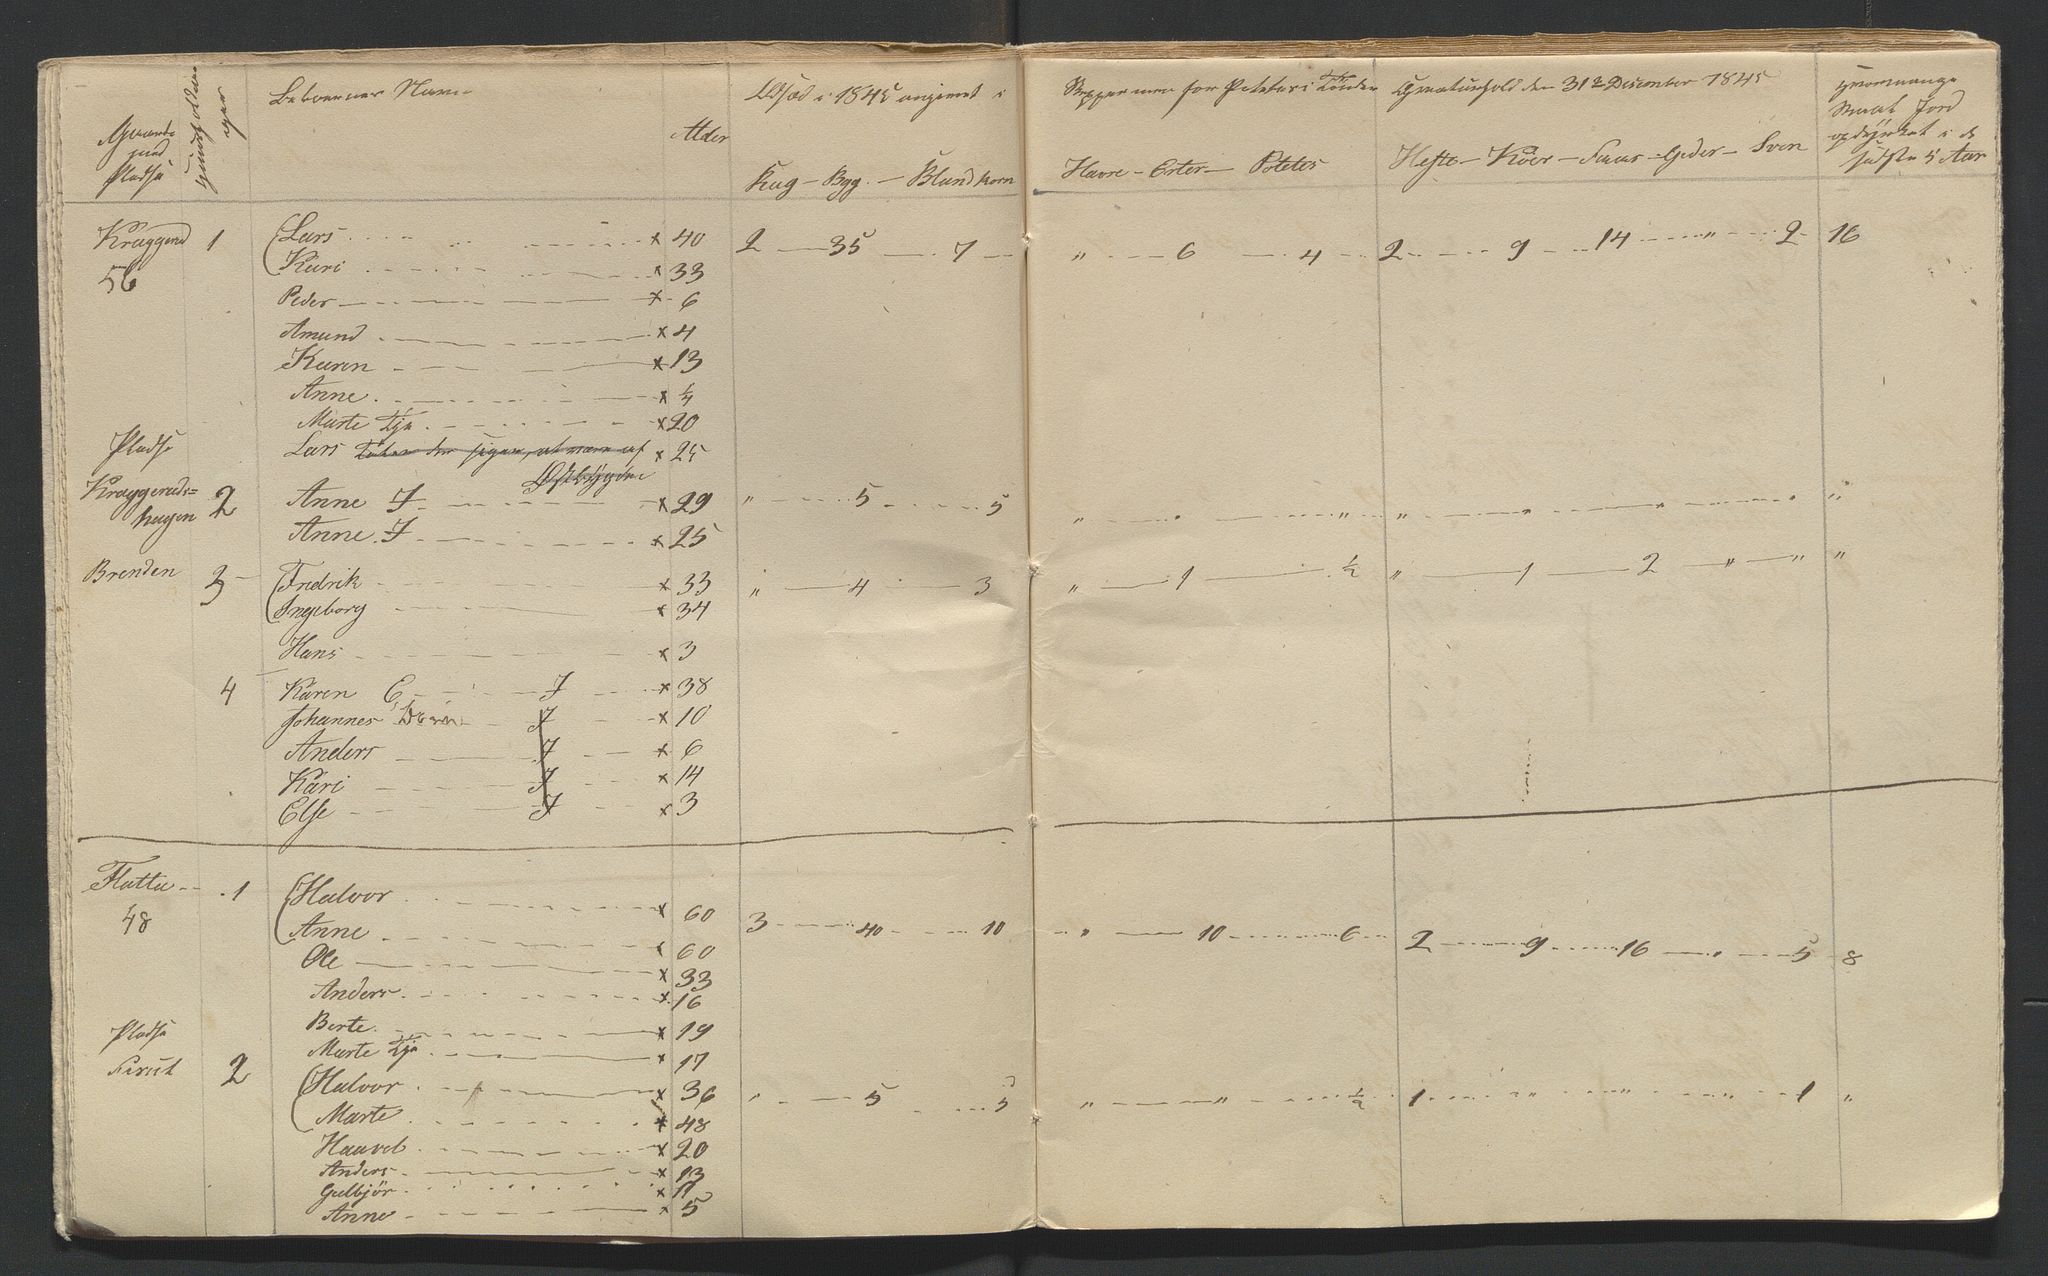 Gaarde med Pladse
Huusholdninger
Beboernes Navne
Alder
Udsæd i 1845 angivet i
Rug - Byg. - Blandkorn
Skjepper men for Poteter i Tønder
Havre - Erter - Poteter
Creaturhold den 31te December 1845
Heste - Kőer - Faar - Geder - Sviin
hvormange Maal Jord opdyrket i de sidste 5 Aar
Kraggerud 1 Lars x 40 2 35 7 " 6 4 2 9 14 " 2 16
56 Kari x 33
Peder x 6
Amund x 4
Karen x 13
Anne x ¼
Marte Tja x 20
Pladse Lars x 25
Kraggeruds= 2 Anne I x 29 " 5 5 " " " " "
hagen Anne I x 25
Brenden 3 Fredrik x 33 " 4 3 " 1 ½ " 1 2 " " "
Ingeborg x 34
Hans x 3
4 Karen E I x 38
Johannes I x 10
Anders I x 6
Kari I x 14
Else I x 3
Flatta 1 Halvor x 60 3 40 10 " 10 6 2 9 16 " 5 8
48 Anne x 60
Ole x 33
Anders x 16
Berte x 19
Pladse Marte Tja x 17
2 Halvor x 36 " 5 5 " " ½ 1 " " " 1 "
Marte x 48
Haavel x 20
Anders x 13
Gulbjör x 11
Anne x 5